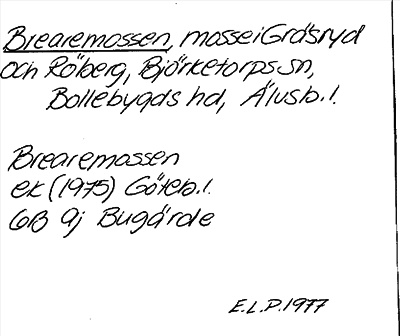 Brearemossen, mosse i Gräsryd
och Röberg, Björketorps sn,
Bollebygds hd, Älvsb. l.
Brearemossen
ek (1975) Göteb. l.
6B 9j Bugärde
E.L.P. 1977